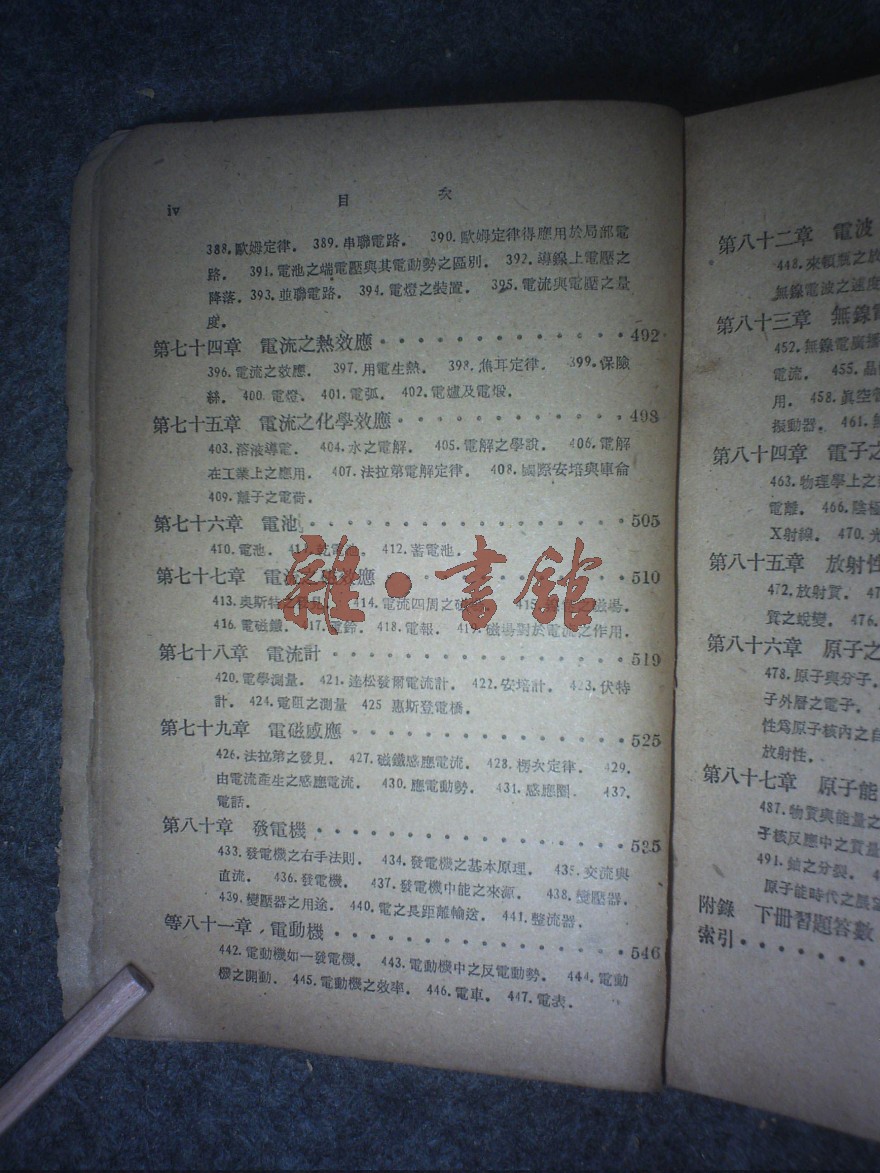 iv
目 次
388.歐姆定律. 389.串聯電路. 390.歐姆定律得應用於局部電
路. 391.電池之端電壓與其電動勢之區別. 392.導線上電壓之
降落. 393.並聯電路. 394.電燈之裝置. 395.電流與電壓之量
度.
第七十四章 電流之熱效應 492
396.電流之效應. 397.用電生熱. 398.焦耳定律. 399.保險
絲. 400.電燈. 401.電弧. 402.電爐及電煅.
第七十五章 電流之化學效應 498
403.溶液導電. 404.水之電解. 405.電解之學說. 406.電解
在工業上之應用. 407.法拉第電解定律. 408.國際安培與庫侖
409.離子之電荷.
第七十六章 電池 505
410.電池. 412.蓄電池.
第七十七章 電流之效應 510
413.奥斯特之發見. 414.電流四周之磁場. 磁場.
416.電磁鐵. 417.電鈴. 418.電報. 419.磁場對於電流之作用.
雜·書館
第七十八章 電流計 519
420.電學測量. 421.達松發爾電流計. 422.安培計. 423.伏特
計. 424.電阻之測量 425 惠斯登電橋.
第七十九章 電磁感應 525
426.法拉第之發見. 427.磁鐵感應電流. 428.楞次定律. 429.
由電流產生之感應電流. 430.應電動勢. 431.感應圈. 432.
電話.
第八十章 發電機 535
433.發電機之右手法則. 434.發電機之基本原理. 435.交流與
直流. 436.發電機. 437.發電機中能之來源. 438.變壓器.
439.變壓器之用途. 440.電之長距離輸送. 441.整流器.
等八十一章 電動機 546
442.電動機如一發電機. 443.電動機中之反電動勢. 444.電動
機之開動. 445.電動機之效率. 446.電車. 447.電表.
第八十二章 電波
448.來頓瓶之放
無線電波之速度
第八十三章 無線電
452.無線電廣播
電流. 455.晶
用. 458.真空管
振動器. 461.
第八十四章 電子之
463.物理學上之
電離. 466.陰極
X射線. 470.光
第八十五章 放射性
472.放射質. 47
質之蛻變. 476.
第八十六章 原子之
478.原子與分子.
子外層之電子.
性爲原子核內之自
放射性.
第八十七章 原子能
487.物質與能量之
子核反應中之質量
491.鈾之分裂.
原子能時代之展望
附錄 下冊習題答數
索引